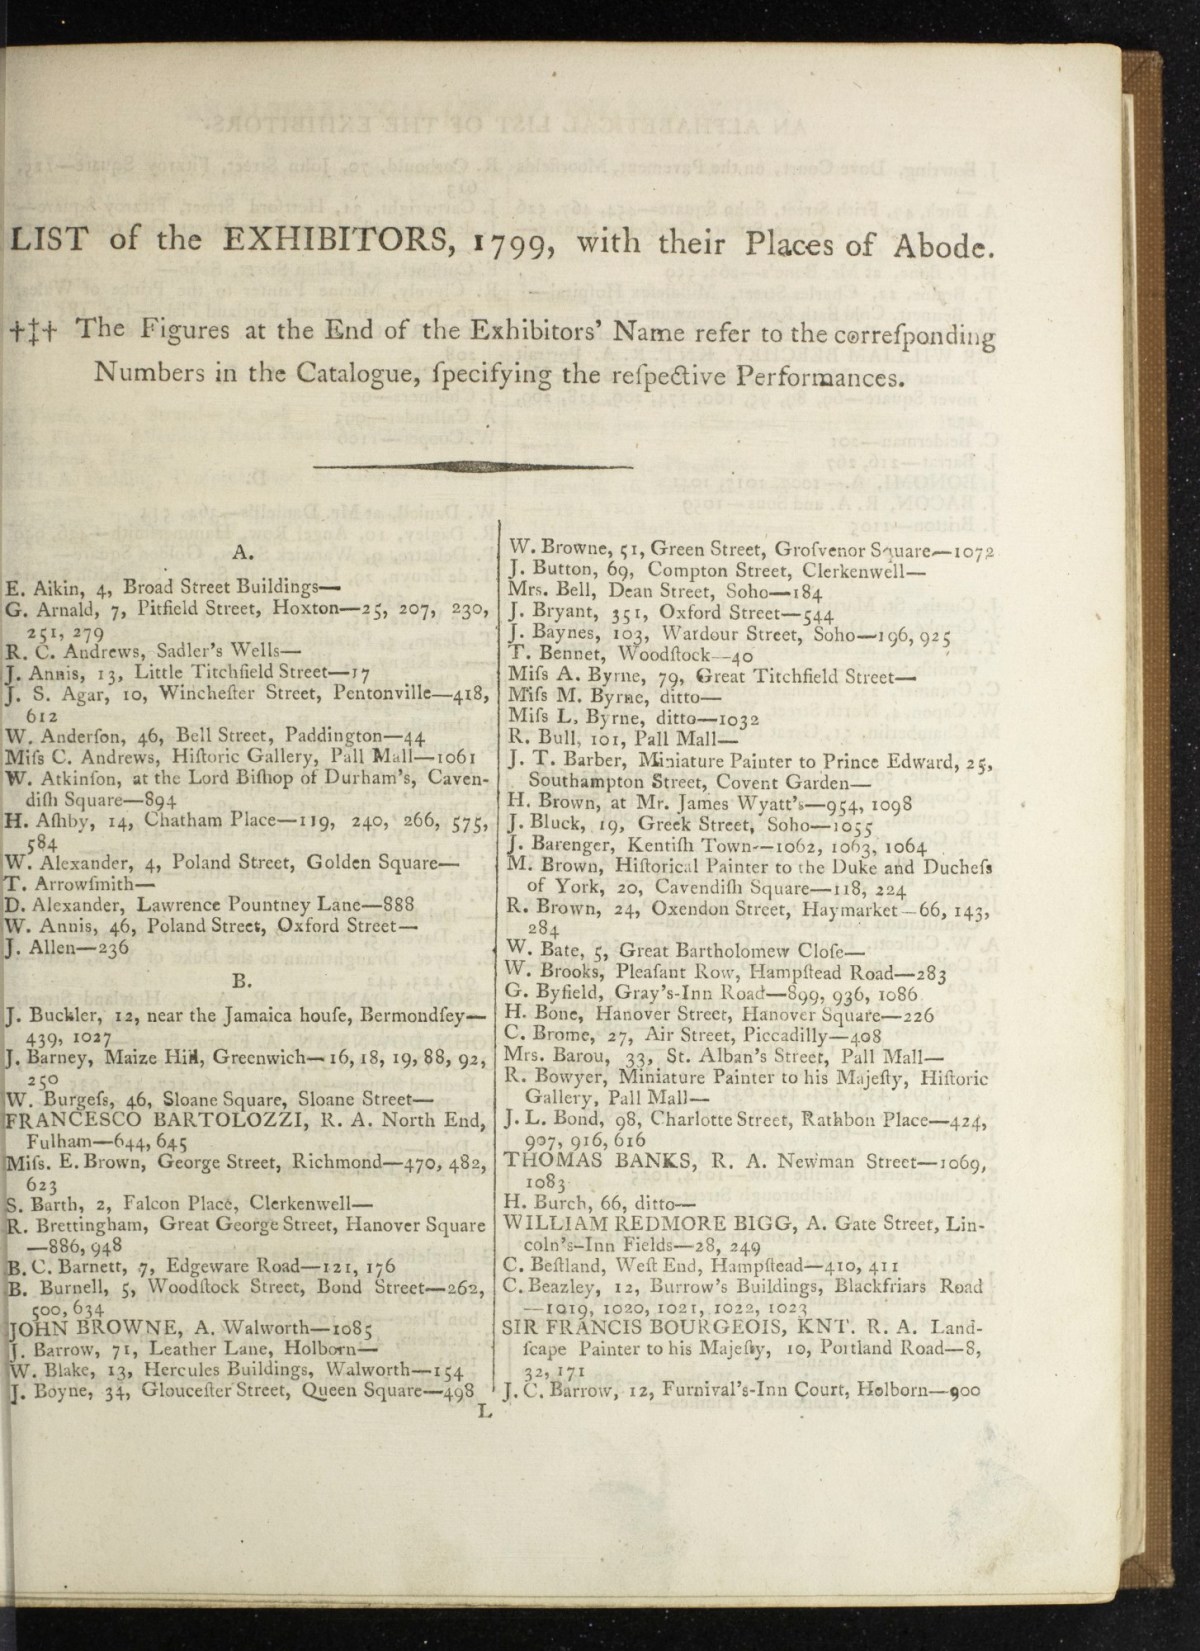 LIST of the EXHIBITORS, 1799, with their Places of Abode.
†‡† The Figures at the End of the Exhibitors' Name refer to the correſponding
Numbers in the Catalogue, ſpecifying the reſpective Performances.
A.
E. Aikin, 4, Broad Street Buildings—
G. Arnald, 7, Pitfield Street, Hoxton—25, 207, 230,
251, 279
R. C. Andrews, Sadler's Wells—
J. Annis, 13, Little Titchfield Street—17
J. S. Agar, 10, Wincheſter Street, Pentonville—418,
612
W. Anderſon, 46, Bell Street, Paddington—44
Miſs C. Andrews, Hiſtoric Gallery, Pall Mall—1061
W. Atkinſon, at the Lord Biſhop of Durham's, Caven-
diſh Square—894
H. Aſhby, 14, Chatham Place—119, 240, 266, 575,
584
W. Alexander, 4, Poland Street, Golden Square—
T. Arrowſmith—
D. Alexander, Lawrence Pountney Lane—888
W. Annis, 46, Poland Street, Oxford Street—
J. Allen—236
B.
J. Buckler, 12, near the Jamaica houſe, Bermondſey—
439, 1027
J. Barney, Maize Hill, Greenwich—16, 18, 19, 88, 92,
250
W. Burgeſs, 46, Sloane Square, Sloane Street—
FRANCESCO BARTOLOZZI, R. A. North End,
Fulham—644, 645
Miſs. E. Brown, George Street, Richmond—470, 482,
623
S. Barth, 2, Falcon Place, Clerkenwell—
R. Brettingham, Great George Street, Hanover Square
—886, 948
B. C. Barnett, 7, Edgeware Road—121, 176
B. Burnell, 5, Woodſtock Street, Bond Street—262,
500, 634
JOHN BROWNE, A. Walworth—1085
J. Barrow, 71, Leather Lane, Holborn—
W. Blake, 13, Hercules Buildings, Walworth—154
J. Boyne, 34, Glouceſter Street, Queen Square—498
L
W. Browne, 51, Green Street, Groſvenor Square—1072
J. Button, 69, Compton Street, Clerkenwell—
Mrs. Bell, Dean Street, Soho—184
J. Bryant, 351, Oxford Street—544
J. Baynes, 103, Wardour Street, Soho—196, 925
T. Bennet, Woodſtock—40
Miſs A. Byrne, 79, Great Titchfield Street—
Miſs M. Byrne, ditto—
Miſs L. Byrne, ditto—1032
R. Bull, 101, Pall Mall—
J. T. Barber, Miniature Painter to Prince Edward, 25,
Southampton Street, Covent Garden—
H. Brown, at Mr. James Wyatt's—954, 1098
J. Bluck, 19, Greek Street, Soho—1055
J. Barenger, Kentiſh Town—1062, 1063, 1064
M. Brown, Hiſtorical Painter to the Duke and Ducheſs
of York, 20, Cavendiſh Square—118, 224
R. Brown, 24, Oxendon Street, Haymarket—66, 143,
284
W. Bate, 5, Great Bartholomew Cloſe—
W. Brooks, Pleaſant Row, Hampſtead Road—283
G. Byfield, Gray's-Inn Road—899, 936, 1086
H. Bone, Hanover Street, Hanover Square—226
C. Brome, 27, Air Street, Piccadilly—408
Mrs. Barou, 33, St. Alban's Street, Pall Mall—
R. Bowyer, Miniature Painter to his Majeſty, Hiſtoric
Gallery, Pall Mall—
J. L. Bond, 98, Charlotte Street, Rathbon Place—424,
907, 916, 616
THOMAS BANKS, R. A. Newman Street—1069,
1083
H. Burch, 66, ditto—
WILLIAM REDMORE BIGG, A. Gate Street, Lin-
coln's-Inn Fields—28, 249
C. Beſtland, Weſt End, Hampſtead—410, 411
C. Beazley, 12, Burrow's Buildings, Blackfriars Road
—1019, 1020, 1021, 1022, 1023
SIR FRANCIS BOURGEOIS, KNT. R. A. Land-
ſcape Painter to his Majeſty, 10, Portland Road—8,
32, 171
J. C. Barrow, 12, Furnival's-Inn Court, Holborn—900